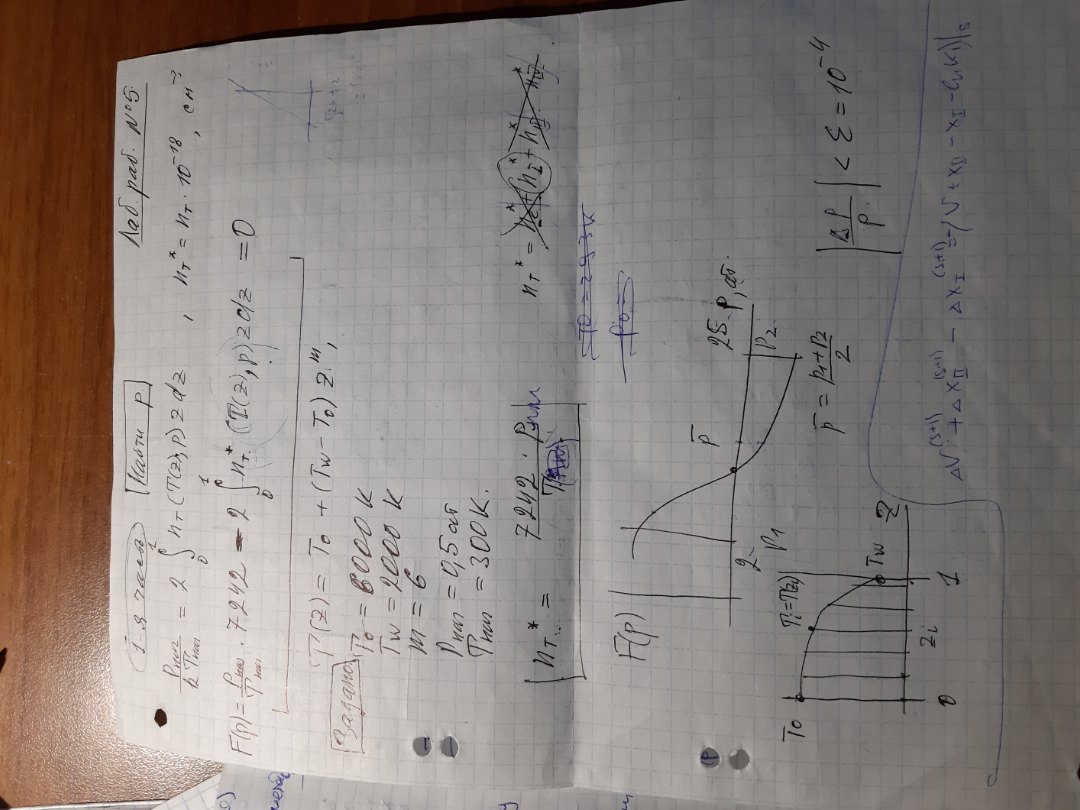 1-я часть
Найти p
Лаб. раб. №5.
Pнач / k Tнач = 2 ∫₀¹ n_T (T(z), p) z dz , n_T* = n_T · 10⁻¹⁸, см⁻³
F(p) = Pнач / Tнач · 7242 - 2 ∫₀¹ n_T* (T(z), p) z dz = 0
T(z) = T₀ + (Tw – T₀) z^m,
Задано:
T₀ = 6000 K
Tw = 2000 K
m = 6
Pнач = 0,5 ат
Tнач = 300 K.
n_T* = 7242 · P / T
T0 = 293 K
P0 =
F(p)
p̄
25 p, ат.
2
p₁
p₂
T₀
Tᵢ = T(zᵢ)
p̄ = (p₁ + p₂) / 2
|Δp / p| < ε = 10⁻⁴
Tw
z
zᵢ
0 1